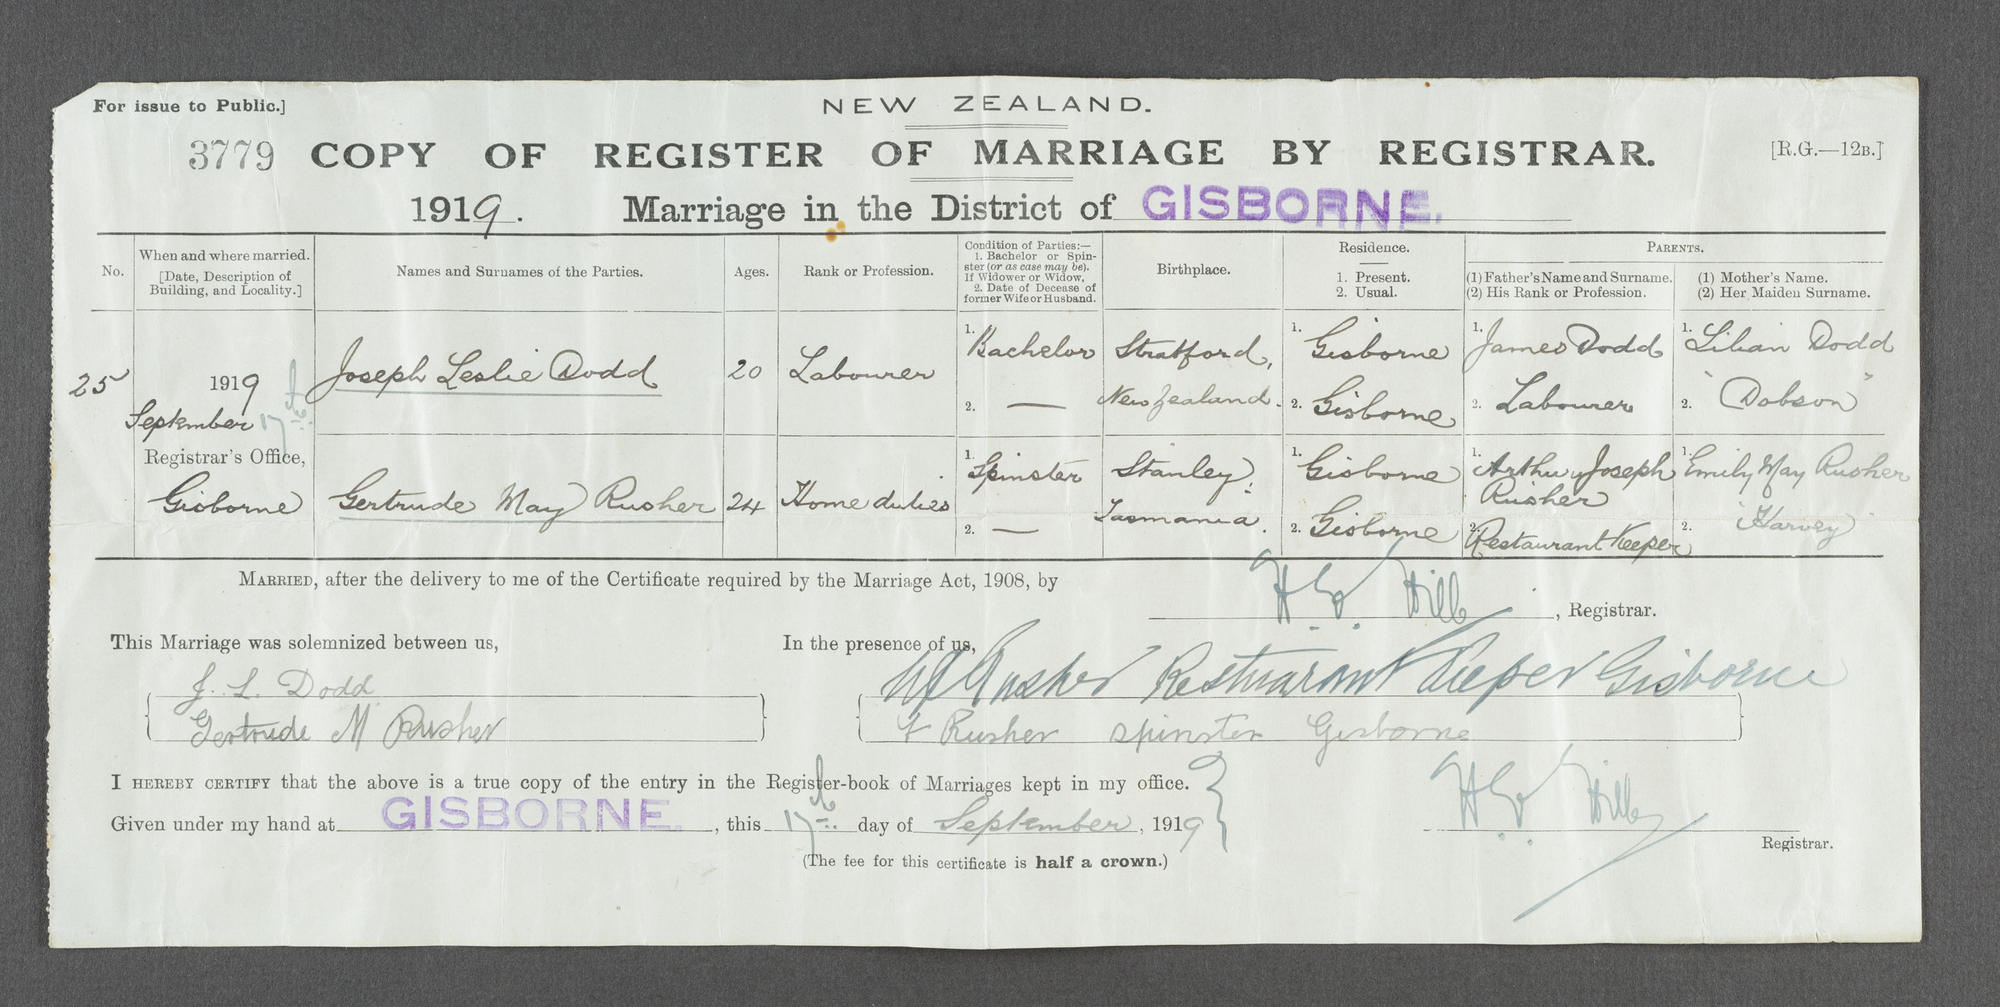 For issue to Public.]
NEW ZEALAND.
3779 COPY OF REGISTER OF MARRIAGE BY REGISTRAR. [R.G.—12B.]
1919. Marriage in the District of GISBORNE.
No.
When and where married.
[Date, Description of
Building, and Locality.]
Names and Surnames of the Parties.
Ages.
Rank or Profession.
Condition of Parties:—
1. Bachelor or Spin-
ster (or as case may be).
If Widower or Widow,
2. Date of Decease of
former Wife or Husband.
Birthplace.
Residence.
1. Present.
2. Usual.
PARENTS.
(1) Father's Name and Surname.
(2) His Rank or Profession.
(1) Mother's Name.
(2) Her Maiden Surname.
25
1919
September 17th
Registrar's Office,
Gisborne
Joseph Leslie Dodd
20
Labourer
1. Bachelor
2. —
Stratford,
New Zealand.
1. Gisborne
2. Gisborne
1. James Dodd
2. Labourer
1. Lilian Dodd
2. "Dobson"
Gertrude May Rusher
24
Home duties
1. Spinster
2. —
Stanley,
Tasmania.
1. Gisborne
2. Gisborne
1. Arthur Joseph
Rusher
2. Restaurant Keeper
1. Emily May Rusher
2. "Harvey"
MARRIED, after the delivery to me of the Certificate required by the Marriage Act, 1908, by
Hill, Registrar.
This Marriage was solemnized between us,
In the presence of us,
J. L. Dodd
Gertrude M Rusher
Rusher Restuarant Keeper Gisborne
Rusher spinster Gisborne
I HEREBY CERTIFY that the above is a true copy of the entry in the Register-book of Marriages kept in my office.
Given under my hand at GISBORNE., this 17th day of September, 1919
Hill
Registrar.
(The fee for this certificate is half a crown.)